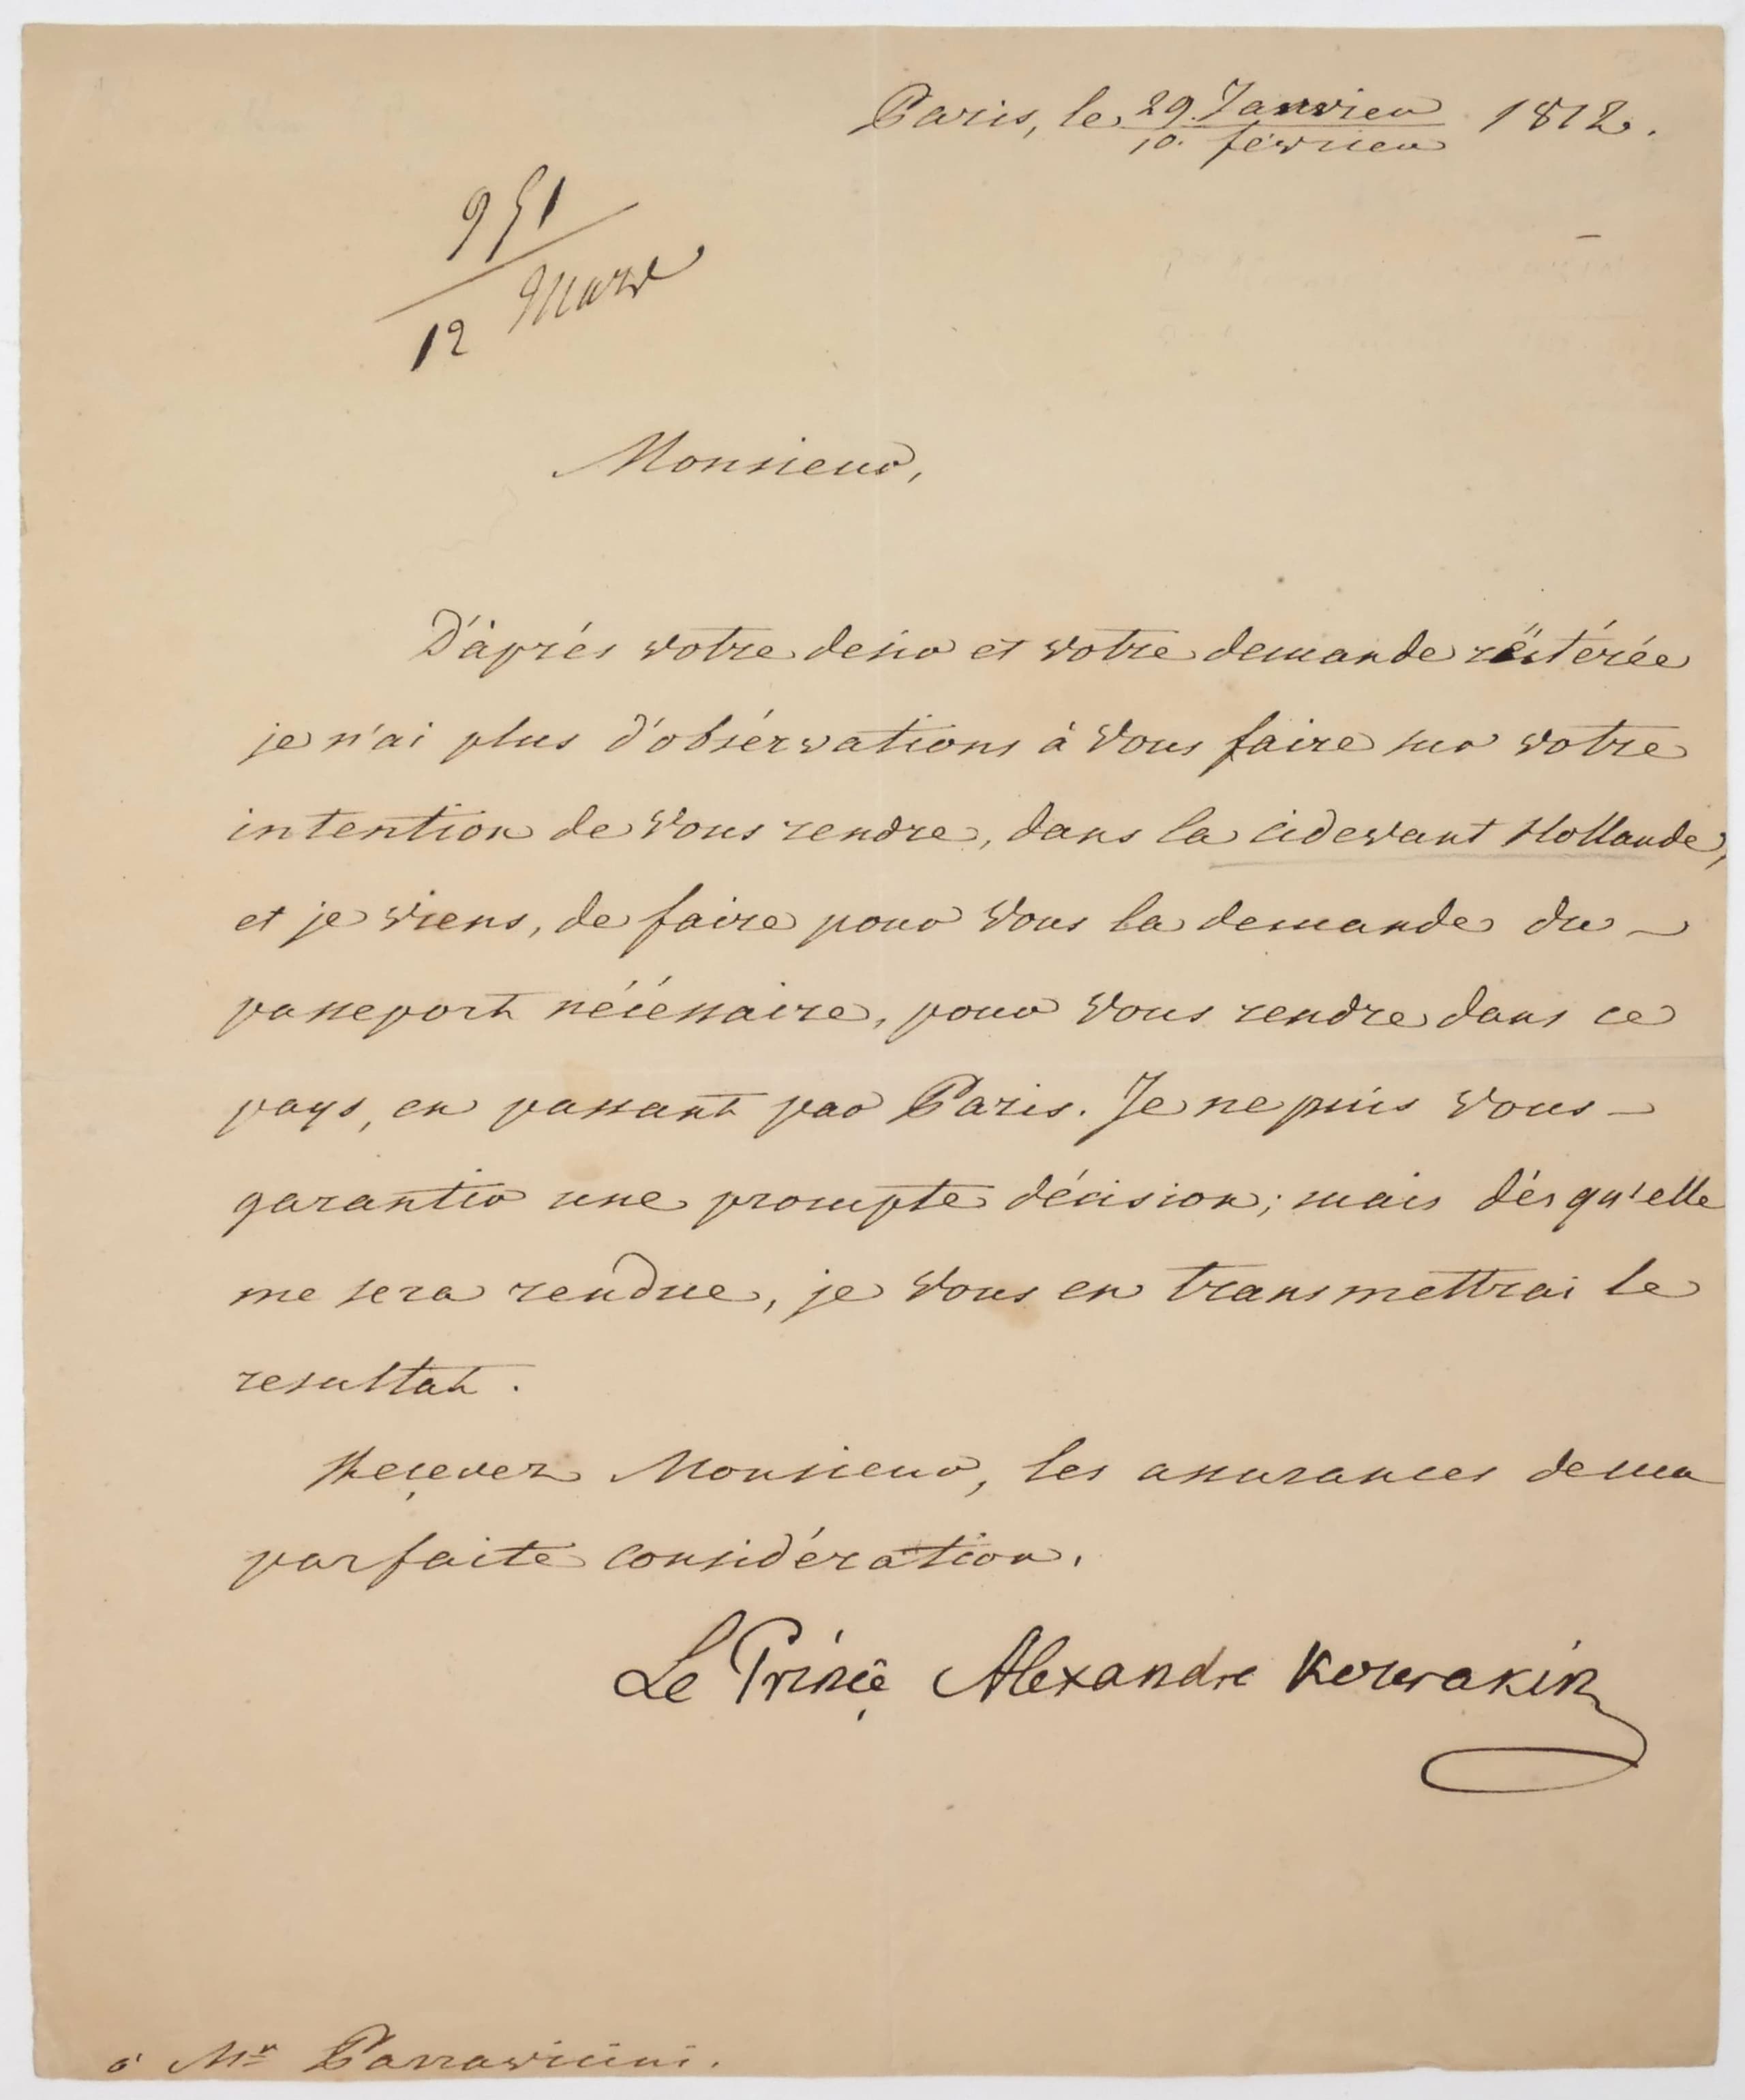 Paris, le 29. Janvier 1812.
10. février
951
12 Mars
Monsieur,
D'àprés votre desir et votre demande réïtérée
je n'ai plus d'obsérvations à Vous faire sur votre
intention de Vous rendre, dans la cidevant Hollande,
et je viens, de faire pour Vous la demande du
passeport nécéssaire, pour Vous rendre dans ce
pays, en passant par Paris. Je ne puis Vous
garantir une prompte décision; mais dés qu'elle
me sera rendue, je Vous en transmettrai le
resultat.
Reçevez Monsieur, les assurances de ma
parfaite considération.
Le Prinçe Alexandre Kourakin
à Mr Parravicini.